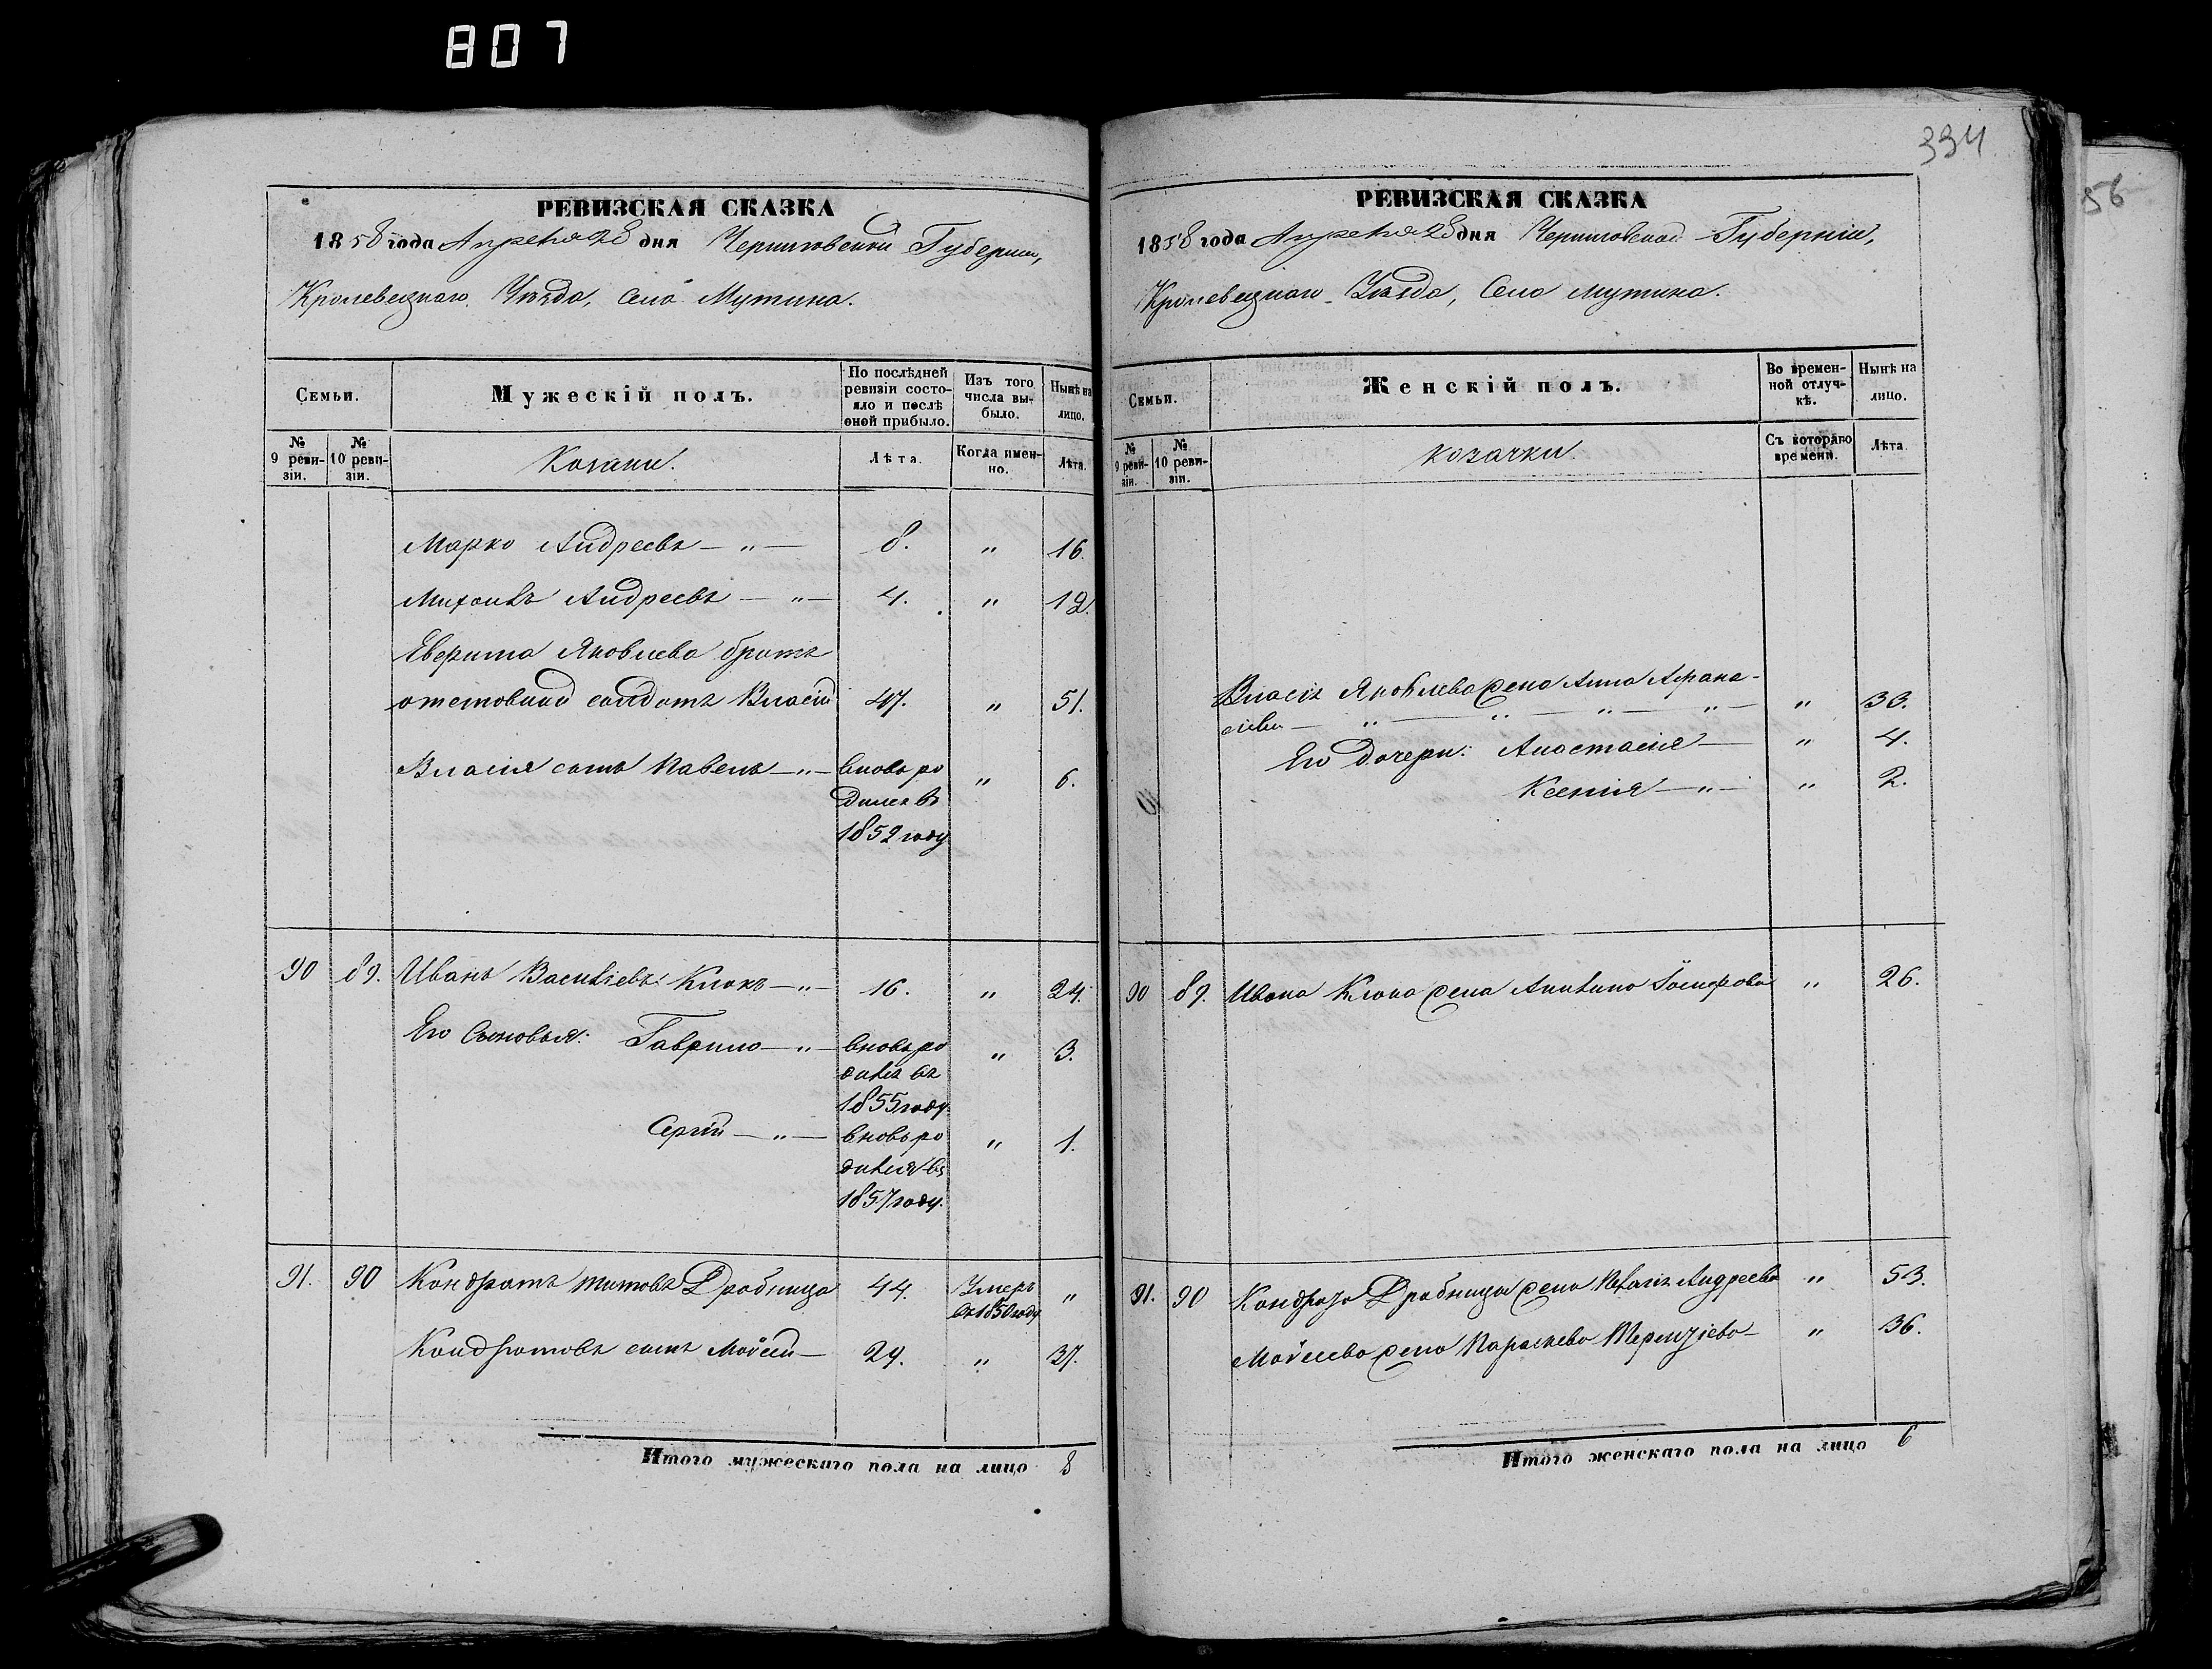 807
334
56
РЕВИЗСКАЯ СКАЗКА
1858 года Апреля 28 дня Черниговской Губерніи,
Кролевецкаго Уѣзда, Села Мутина.
Семьи.
Мужескій полъ.
По послѣдней ревизіи состояло и послѣ оной прибыло.
Изъ того числа выбыло.
Нынѣ на лицо.
№ 9 ревизіи.
№ 10 ревизіи.
Козаки.
Лѣта.
Когда именно.
Лѣта.
Марко Андреевъ — „ — 8. „ 16.
Михаилъ Андреевъ — „ — 4. „ 12.
Яковлева братъ
отставной солдатъ Власій 47. „ 51.
Власія сынъ Павелъ — „ — вновь ро „ 6.
дился въ
1852 году
90 89. Иванъ Васильевъ Клюкъ — „ — 16. „ 24.
Его Сыновья: Гаврило — „ — вновь ро „ 3.
дился въ
1855 году.
Сергій — „ — вновь ро „ 1.
дился въ
1857 году.
91. 90 Кондратъ Титовъ Дробница 44. Умеръ „
въ 1850 году
Кондратовъ сынъ Моисей — 29. „ 37.
Итого мужескаго пола на лицо 8
РЕВИЗСКАЯ СКАЗКА
1858 года Апреля 28 дня Черниговской Губерніи,
Кролевецкаго Уѣзда, Села Мутина.
Семьи.
Женскій полъ.
Во временной отлучкѣ.
Нынѣ на лицо.
№ 9 ревизіи.
№ 10 ревизіи.
козачки
Съ котораго времени.
Лѣта.
Власія Яковлева жена Анна Афана-
сіева — „ — „ — „ — „ — „ 33.
Его дочери: Анастасія — „ 4.
Ксенія — „ — „ 2.
90 89. Ивана Клюка жена Акилина „ 26.
91. 90 Кондрата Дробницы жена Андреева „ 53.
Моисеева жена Параскева Терентіева — „ 36.
Итого женскаго пола на лицо 6